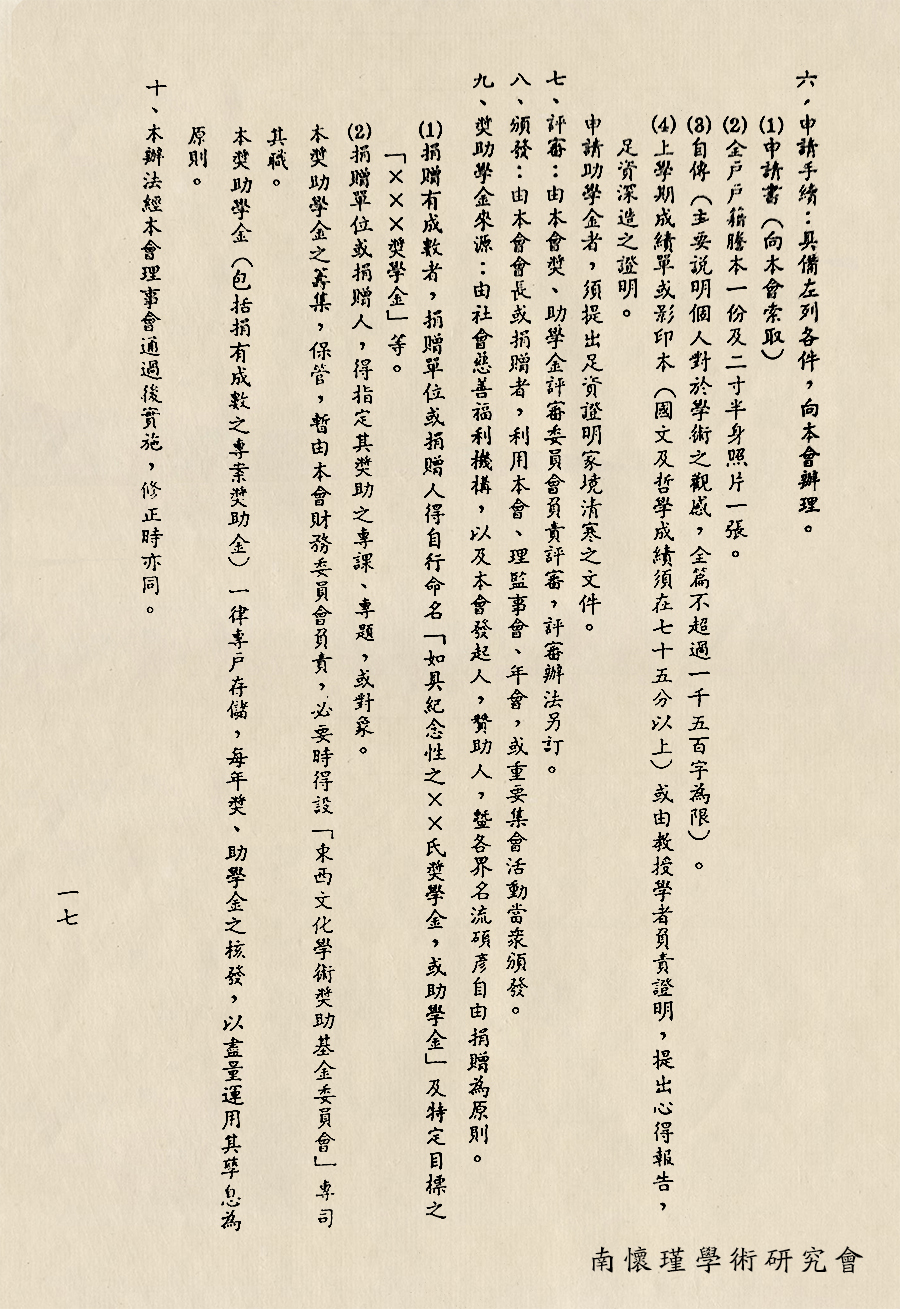 六、申請手續：具備左列各件，向本會辦理。
(1)申請書（向本會索取）
(2)全戶戶籍謄本一份及二寸半身照片一張。
(3)自傳（主要說明個人對於學術之觀感，全篇不超過一千五百字為限）。
(4)上學期成績單或影印本（國文及哲學成績須在七十五分以上）或由教授學者負責證明，提出心得報告，
足資深造之證明。
申請助學金者，須提出足資證明家境清寒之文件。
七、評審：由本會獎、助學金評審委員會負責評審，評審辦法另訂。
八、頒發：由本會會長或捐贈者，利用本會、理監事會、年會，或重要集會活動當眾頒發。
九、獎助學金來源：由社會慈善福利機構，以及本會發起人，贊助人，暨各界名流碩彥自由捐贈為原則。
(1)捐贈有成數者，捐贈單位或捐贈人得自行命名「如具紀念性之××氏獎學金，或助學金」及特定目標之
「×××獎學金」等。
(2)捐贈單位或捐贈人，得指定其獎助之專課、專題，或對象。
本獎助學金之籌集，保管，暫由本會財務委員會負責，必要時得設「東西文化學術獎助基金委員會」專司
其職。
本獎助學金（包括捐有成數之專案獎助金）一律專戶存儲，每年獎、助學金之核發，以盡量運用其孳息為
原則。
十、本辦法經本會理事會通過後實施，修正時亦同。
一七
南懷瑾學術研究會